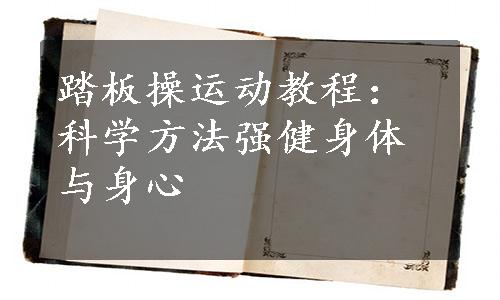 踏板操运动教程：
科学方法强健身体
与身心